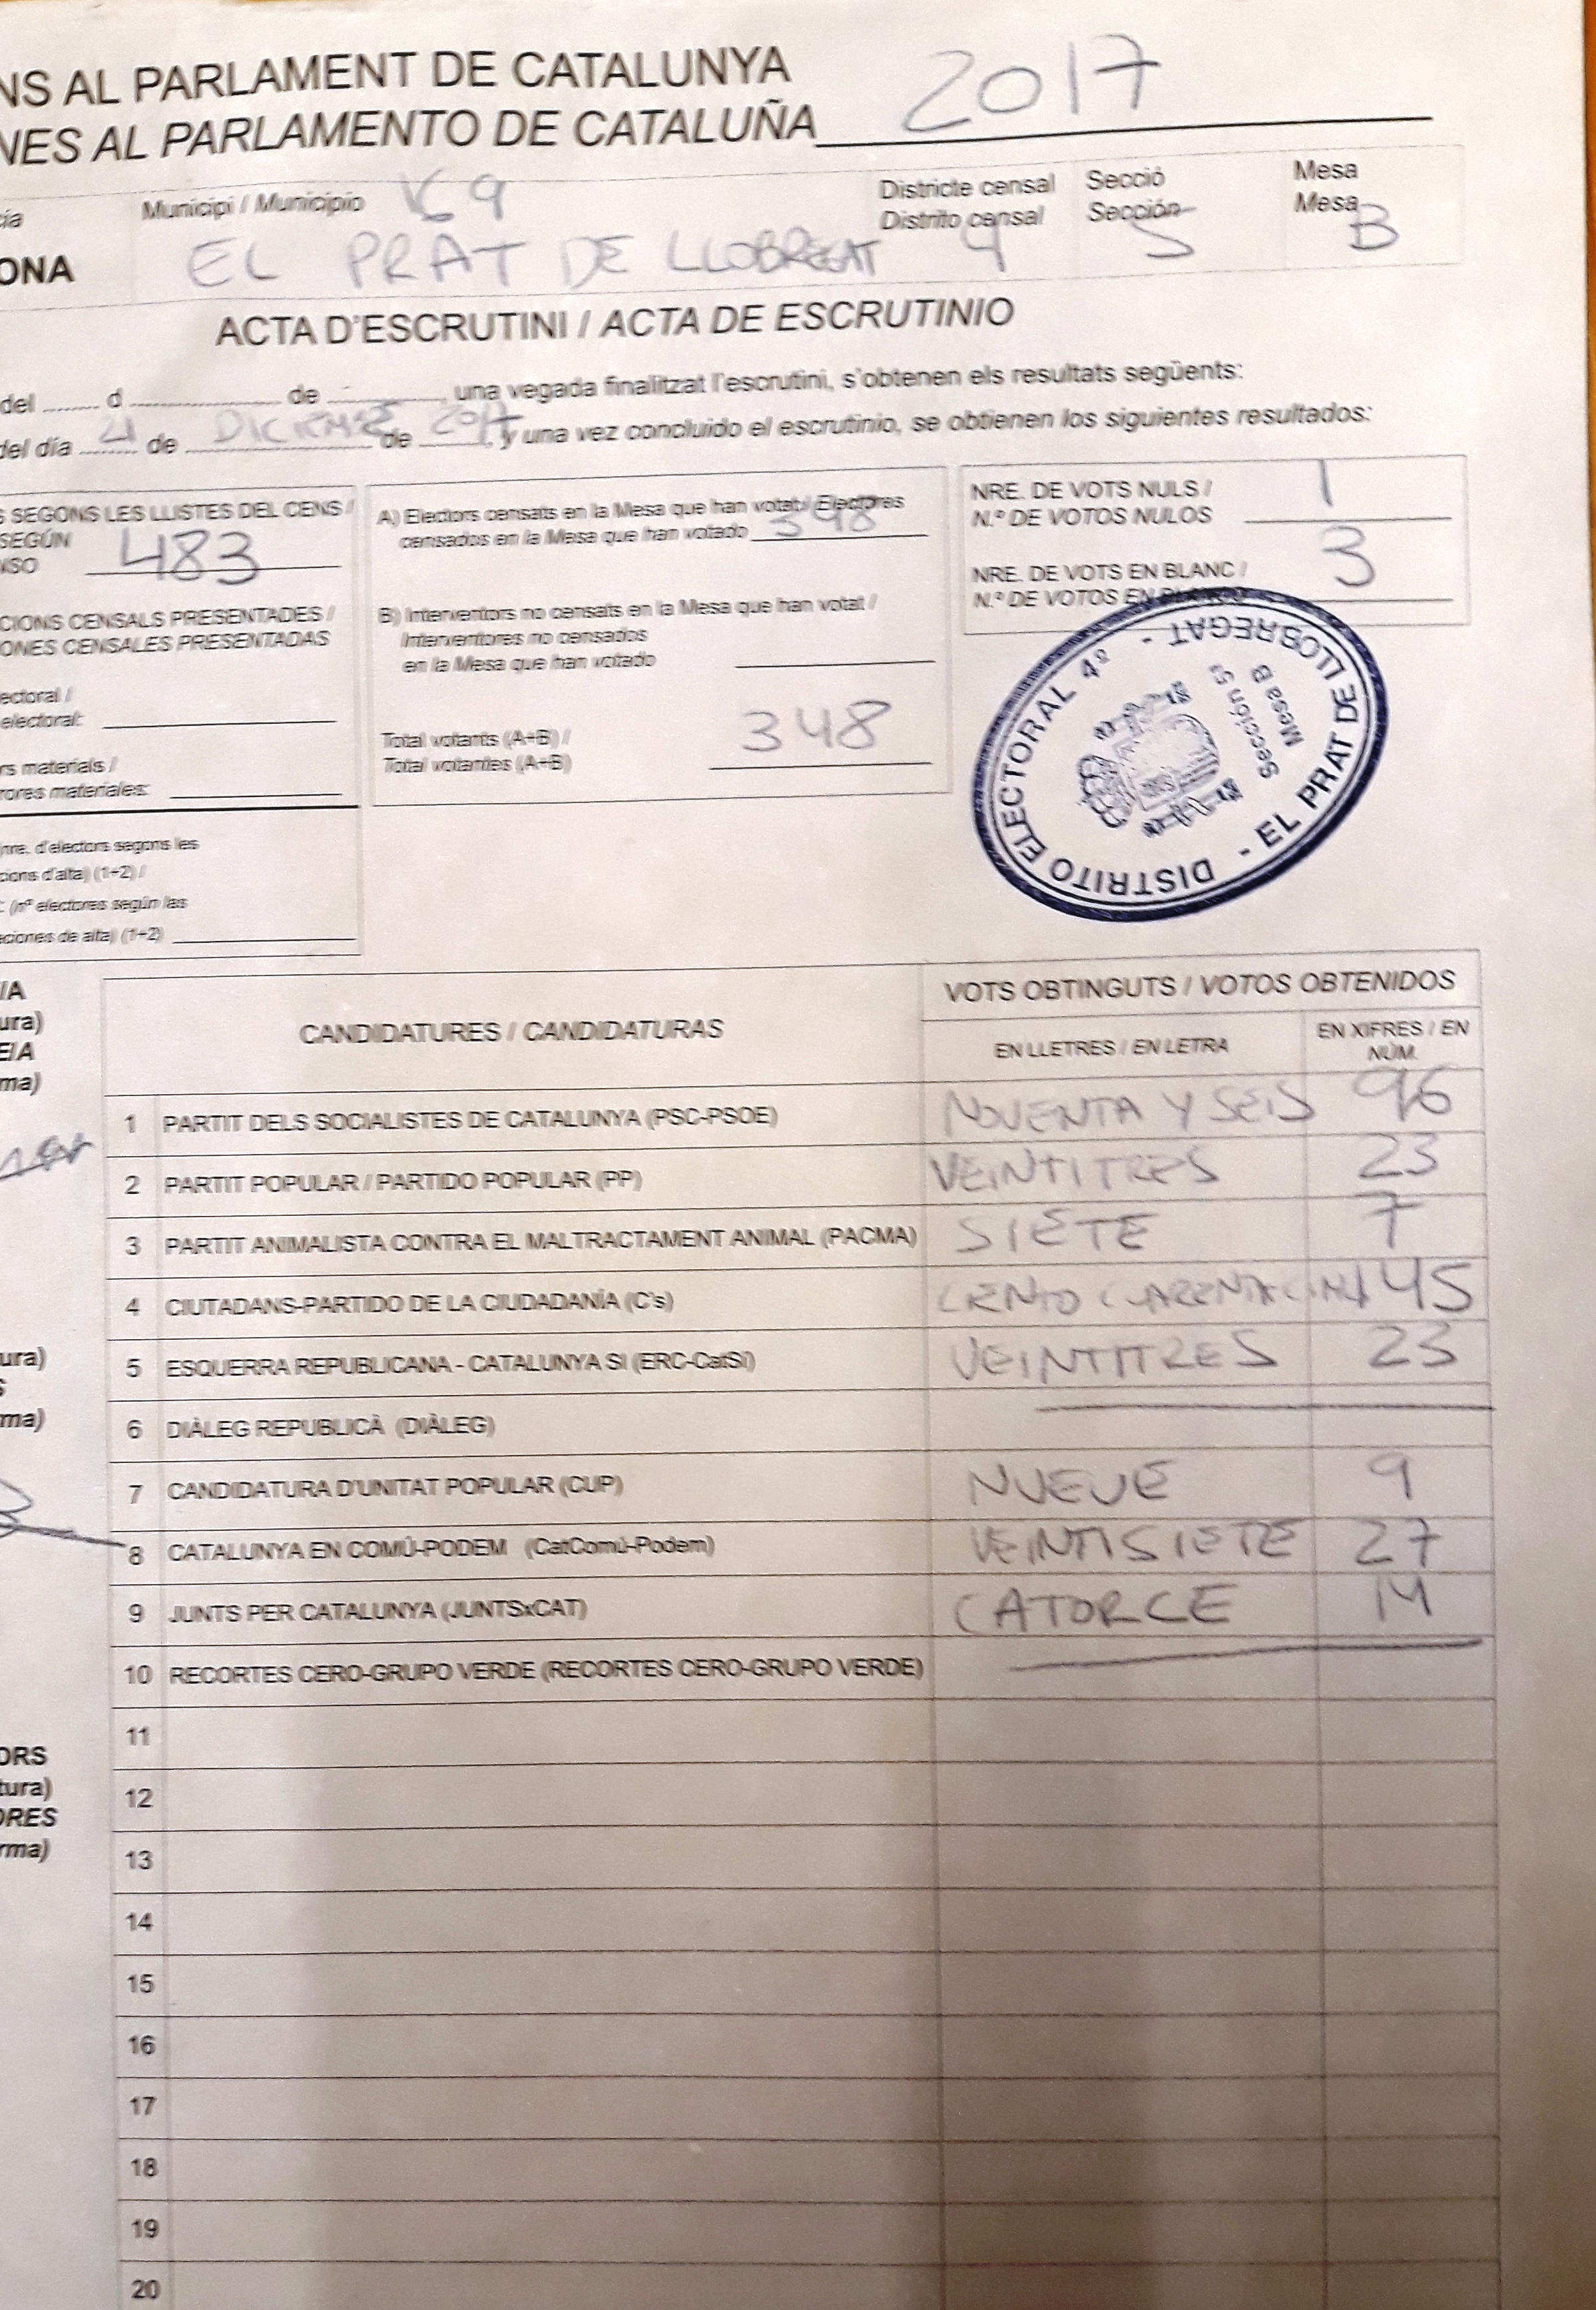 NS AL PARLAMENT DE CATALUNYA
NES AL PARLAMENTO DE CATALUÑA 2017
cía
ONA
Municipi / Municipio
EL PRAT DE LLOBREGAT
Districte censal
Distrito censal
4
Secció
Sección
5
Mesa
Mesa
B
ACTA D'ESCRUTINI / ACTA DE ESCRUTINIO
del ........ d ...................... de ................, una vegada finalitzat l'escrutini, s'obtenen els resultats següents:
del día 21 de DICIEMBRE de 2017, y una vez concluido el escrutinio, se obtienen los siguientes resultados:
S SEGONS LES LLISTES DEL CENS /
SEGÚN
NSO 483
CIONS CENSALS PRESENTADES /
ONES CENSALES PRESENTADAS
ectoral /
electoral:
rs materials /
rores materiales:
nre. d'electors segons les
cions d'alta) (1+2) /
: (nº electores según las
aciones de alta) (1+2)
A) Electors censats en la Mesa que han votat / Electores
censados en la Mesa que han votado 348
B) Interventors no censats en la Mesa que han votat /
Interventores no censados
en la Mesa que han votado
Total votants (A+B) /
Total votantes (A+B) 348
NRE. DE VOTS NULS /
N.º DE VOTOS NULOS 1
NRE. DE VOTS EN BLANC /
N.º DE VOTOS EN BLANCO 3
DISTRITO ELECTORAL 4º - EL PRAT DE LLOBREGAT -
Sección 5
Mesa B
/A
ura)
E/A
ma)
ura)
S
ma)
ORS
tura)
ORES
rma)
CANDIDATURES / CANDIDATURAS
VOTS OBTINGUTS / VOTOS OBTENIDOS
EN LLETRES / EN LETRA
EN XIFRES / EN
NÚM.
1 PARTIT DELS SOCIALISTES DE CATALUNYA (PSC-PSOE) NOVENTA Y SEIS 96
2 PARTIT POPULAR / PARTIDO POPULAR (PP) VEINTITRES 23
3 PARTIT ANIMALISTA CONTRA EL MALTRACTAMENT ANIMAL (PACMA) SIETE 7
4 CIUTADANS-PARTIDO DE LA CIUDADANÍA (C's) CIENTO CUARENTA 145
5 ESQUERRA REPUBLICANA - CATALUNYA SI (ERC-CatSí) VEINTITRES 23
6 DIÀLEG REPUBLICÀ (DIÀLEG)
7 CANDIDATURA D'UNITAT POPULAR (CUP) NUEVE 9
8 CATALUNYA EN COMÚ-PODEM (CatComú-Podem) VEINTISIETE 27
9 JUNTS PER CATALUNYA (JUNTSxCAT) CATORCE 14
10 RECORTES CERO-GRUPO VERDE (RECORTES CERO-GRUPO VERDE)
11
12
13
14
15
16
17
18
19
20